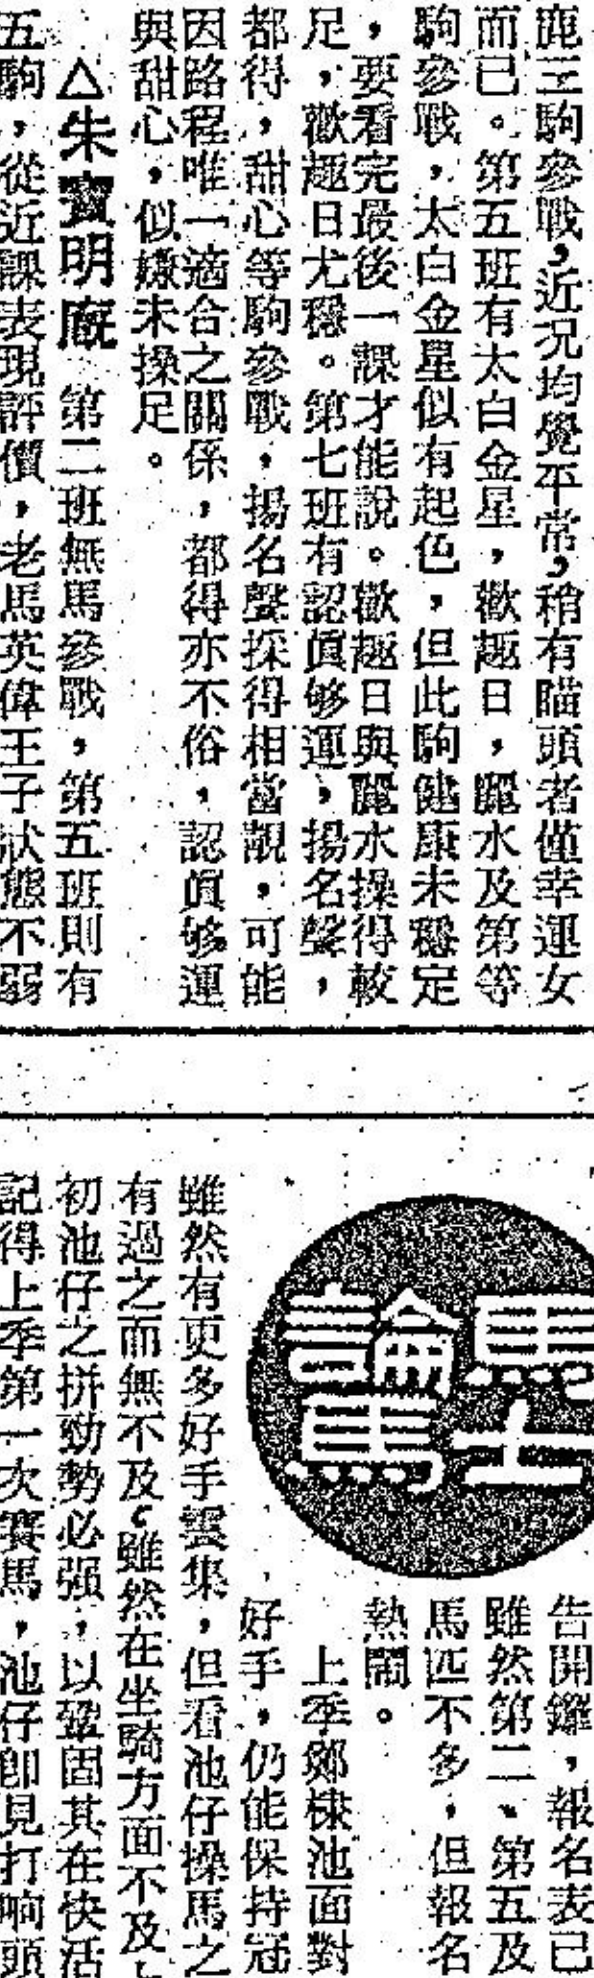 鹿三駒參戰，近况均覺平常，稍有瞄頭者僅幸運女
而已。第五班有太白金星，歡趣日，麗水及第等
駒參戰，太白金星似有起色，但此駒健康未穩定
，要看完最後一課才能說。歡趣日與麗水操得較
足，歡趣日尤穩。第七班有認眞够運，揚名聲，
都得，甜心等駒參戰，揚名聲採得相當靚，可能
因路程唯一適合之關係，都得亦不俗，認眞够運
與甜心，似嫌未操足。
△朱寶明廐　第二班無馬參戰，第五班則有
五駒，從近課表現評價，老馬英偉王子狀態不弱
馬論
士馬
告開鑼，報名表已
雖然第二、第五及
馬匹不多，但報名
熱鬧。
上季鄭棣池面對
好手，仍能保持冠
雖然有更多好手雲集，但看池仔操馬之
有過之而無不及。雖然在坐騎方面不及上
初池仔之拼勁勢必强，以鞏固其在快活
記得上季第一次賽馬，池仔卽見打响頭